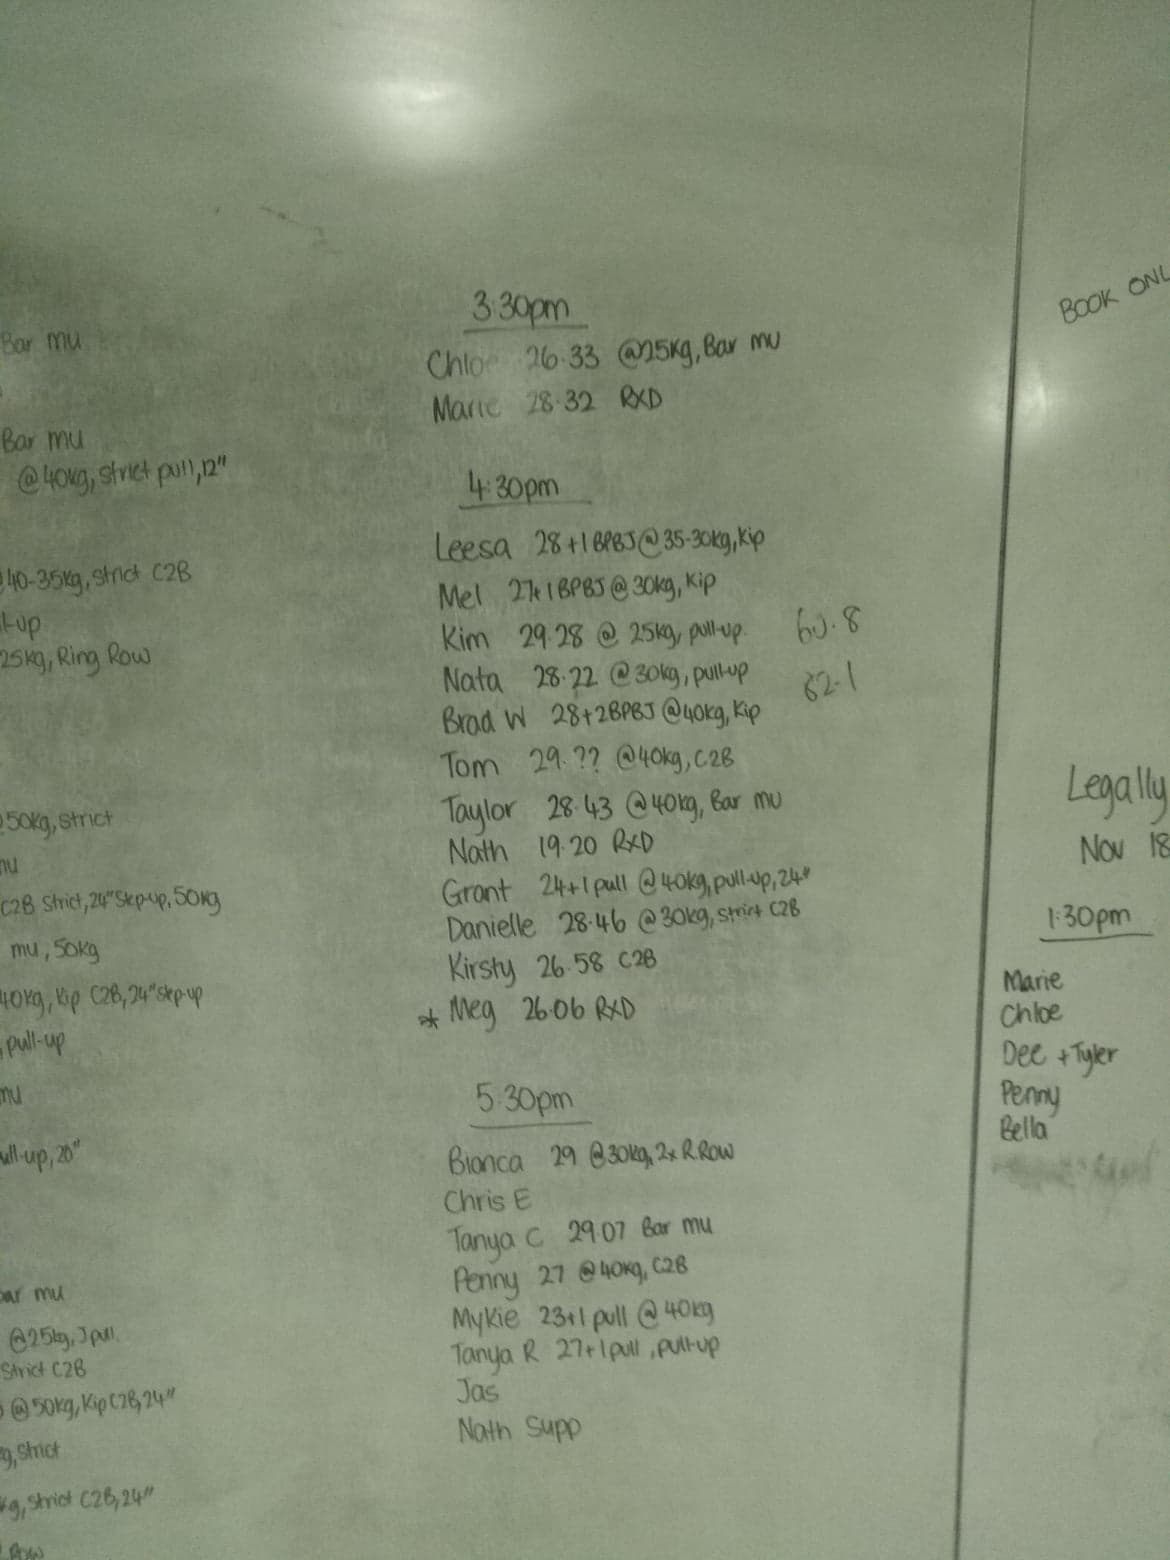 Bar mu
Bar mu
@40kg, strict pull, 12"
40-35kg, strict C2B
25kg, Ring Row
50kg, strict
mu
C2B Strict, 24" Step-up, 50kg
mu, 50kg
40kg, Kip C2B, 24" step-up
pull-up
mu
ull-up, 20"
bar mu
@25kg, J pull
Strict C2B
@50kg, Kip C2B, 24"
g, strict
kg, strict C2B, 24"
Row
3:30pm
Chloe 26.33 @25kg, Bar mu
Marie 28.32 RXD
4:30pm
Leesa 28+1 BPBJ @ 35-30kg, Kip
Mel 27+1 BPBJ @ 30kg, Kip
Kim 29.28 @ 25kg, pull-up.
Nata 28.22 @ 30kg, pull-up
Brad W 28+2BPBJ @40kg, Kip
Tom 29.?? @40kg, C2B
Taylor 28.43 @40kg, Bar mu
Nath 19.20 RXD
Grant 24+1 pull @40kg, pull-up, 24"
Danielle 28.46 @30kg, strict C2B
Kirsty 26.58 C2B
* Meg 26.06 RXD
60.8
62-1
5.30pm
Bianca 29 @30kg, 2x R.Row
Chris E
Tanya C 29.07 Bar mu
Penny 27 @40kg, C2B
Mykie 23+1 pull @ 40kg
Tanya R 27+1 pull, pull-up
Jas
Nath Supp
BOOK ONL
Legally
Nov 18
1:30pm
Marie
Chloe
Dee + Tyler
Penny
Bella